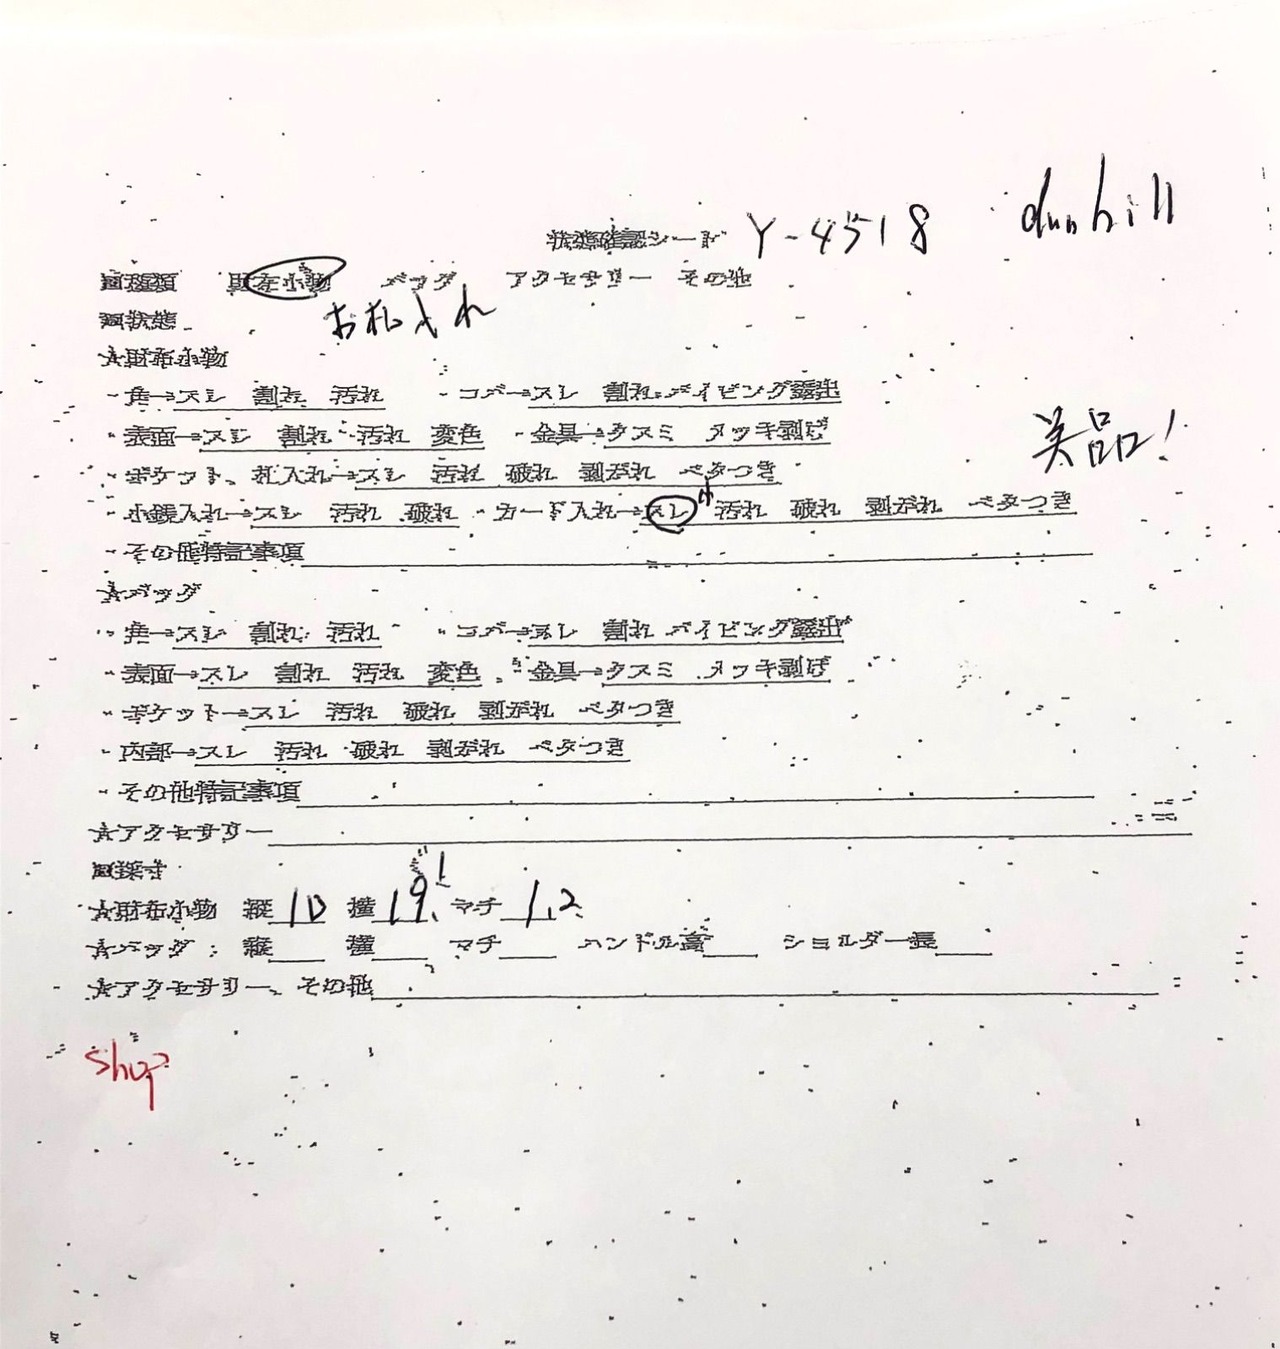 dunhill
状態確認シート Y-4518
□種類 財布小物 バッグ アクセサリー その他
お札入れ
□状態
☆財布小物
・角→スレ 割れ 汚れ ・コバ→スレ 割れ パイピング露出
・表面→スレ 割れ 汚れ 変色 ・金具→クスミ メッキ剥げ
美品!
・ポケット、札入れ→スレ 汚れ 破れ 剥がれ ベタつき
・小銭入れ→スレ 汚れ 破れ ・カード入れ→スレ 小 汚れ 破れ 剥がれ ベタつき
・その他特記事項
☆バッグ
・角→スレ 割れ 汚れ ・コバ→スレ 割れ パイピング露出
・表面→スレ 割れ 汚れ 変色 ・金具→クスミ メッキ剥げ
・ポケット→スレ 汚れ 破れ 剥がれ ベタつき
・内部→スレ 汚れ 破れ 剥がれ ベタつき
・その他特記事項
☆アクセサリー
□採寸
☆財布小物 縦 10 横 19. マチ 1.2
☆バッグ 縦 横 マチ ハンドル高 ショルダー長
☆アクセサリー、その他
shop